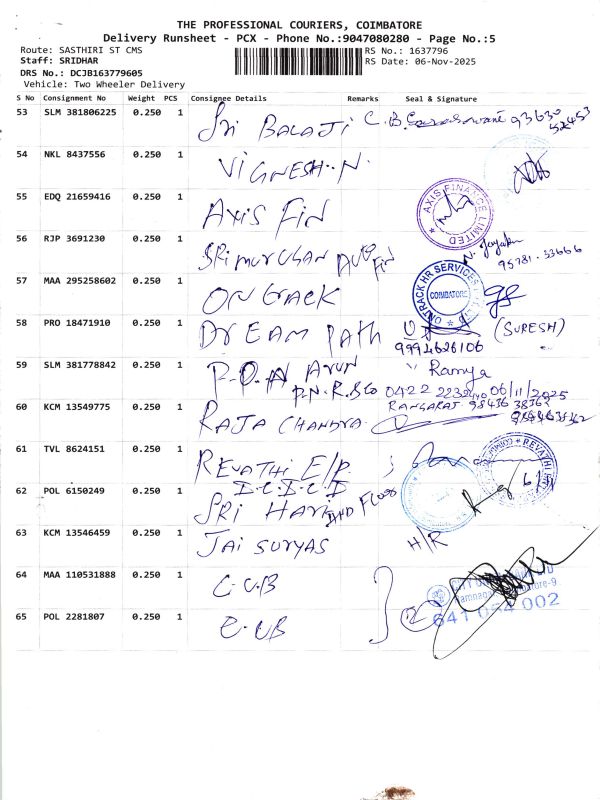 THE PROFESSIONAL COURIERS, COIMBATORE
Delivery Runsheet - PCX - Phone No.:9047080280 - Page No.:5
Route: SASTHIRI ST CMS RS No.: 1637796
Staff: SRIDHAR RS Date: 06-Nov-2025
DRS No.: DCJB163779605
Vehicle: Two Wheeler Delivery
S No Consignment No Weight PCS Consignee Details Remarks Seal & Signature
53 SLM 381806225 0.250 1 Sri BALAJI C.B. 93630
52453
54 NKL 8437556 0.250 1 VIGNESH.N.
55 EDQ 21659416 0.250 1 AXIS FIN AXIS FINANCE LIMITED
56 RJP 3691230 0.250 1 SRI MURUGAN AUTO FIN
95781-33666
57 MAA 295258602 0.250 1 ON track ONTRACK HR SERVICES COIMBATORE
58 PRO 18471910 0.250 1 DREAM Path (SURESH)
9994626106
59 SLM 381778842 0.250 1 P.O.N ARUN Ramya
P.N.R. 0422 06/11/2025
60 KCM 13549775 0.250 1 RAJA CHANDRA RANGARAJ 98436 38362
61 TVL 8624151 0.250 1 REVATHI E/P REVATHI
I.C.I.C.I
62 POL 6150249 0.250 1 SRI HARI 6/11
63 KCM 13546459 0.250 1 JAI SURYAS H/R
64 MAA 110531888 0.250 1 C.U.B
65 POL 2281807 0.250 1 C.UB 641 002